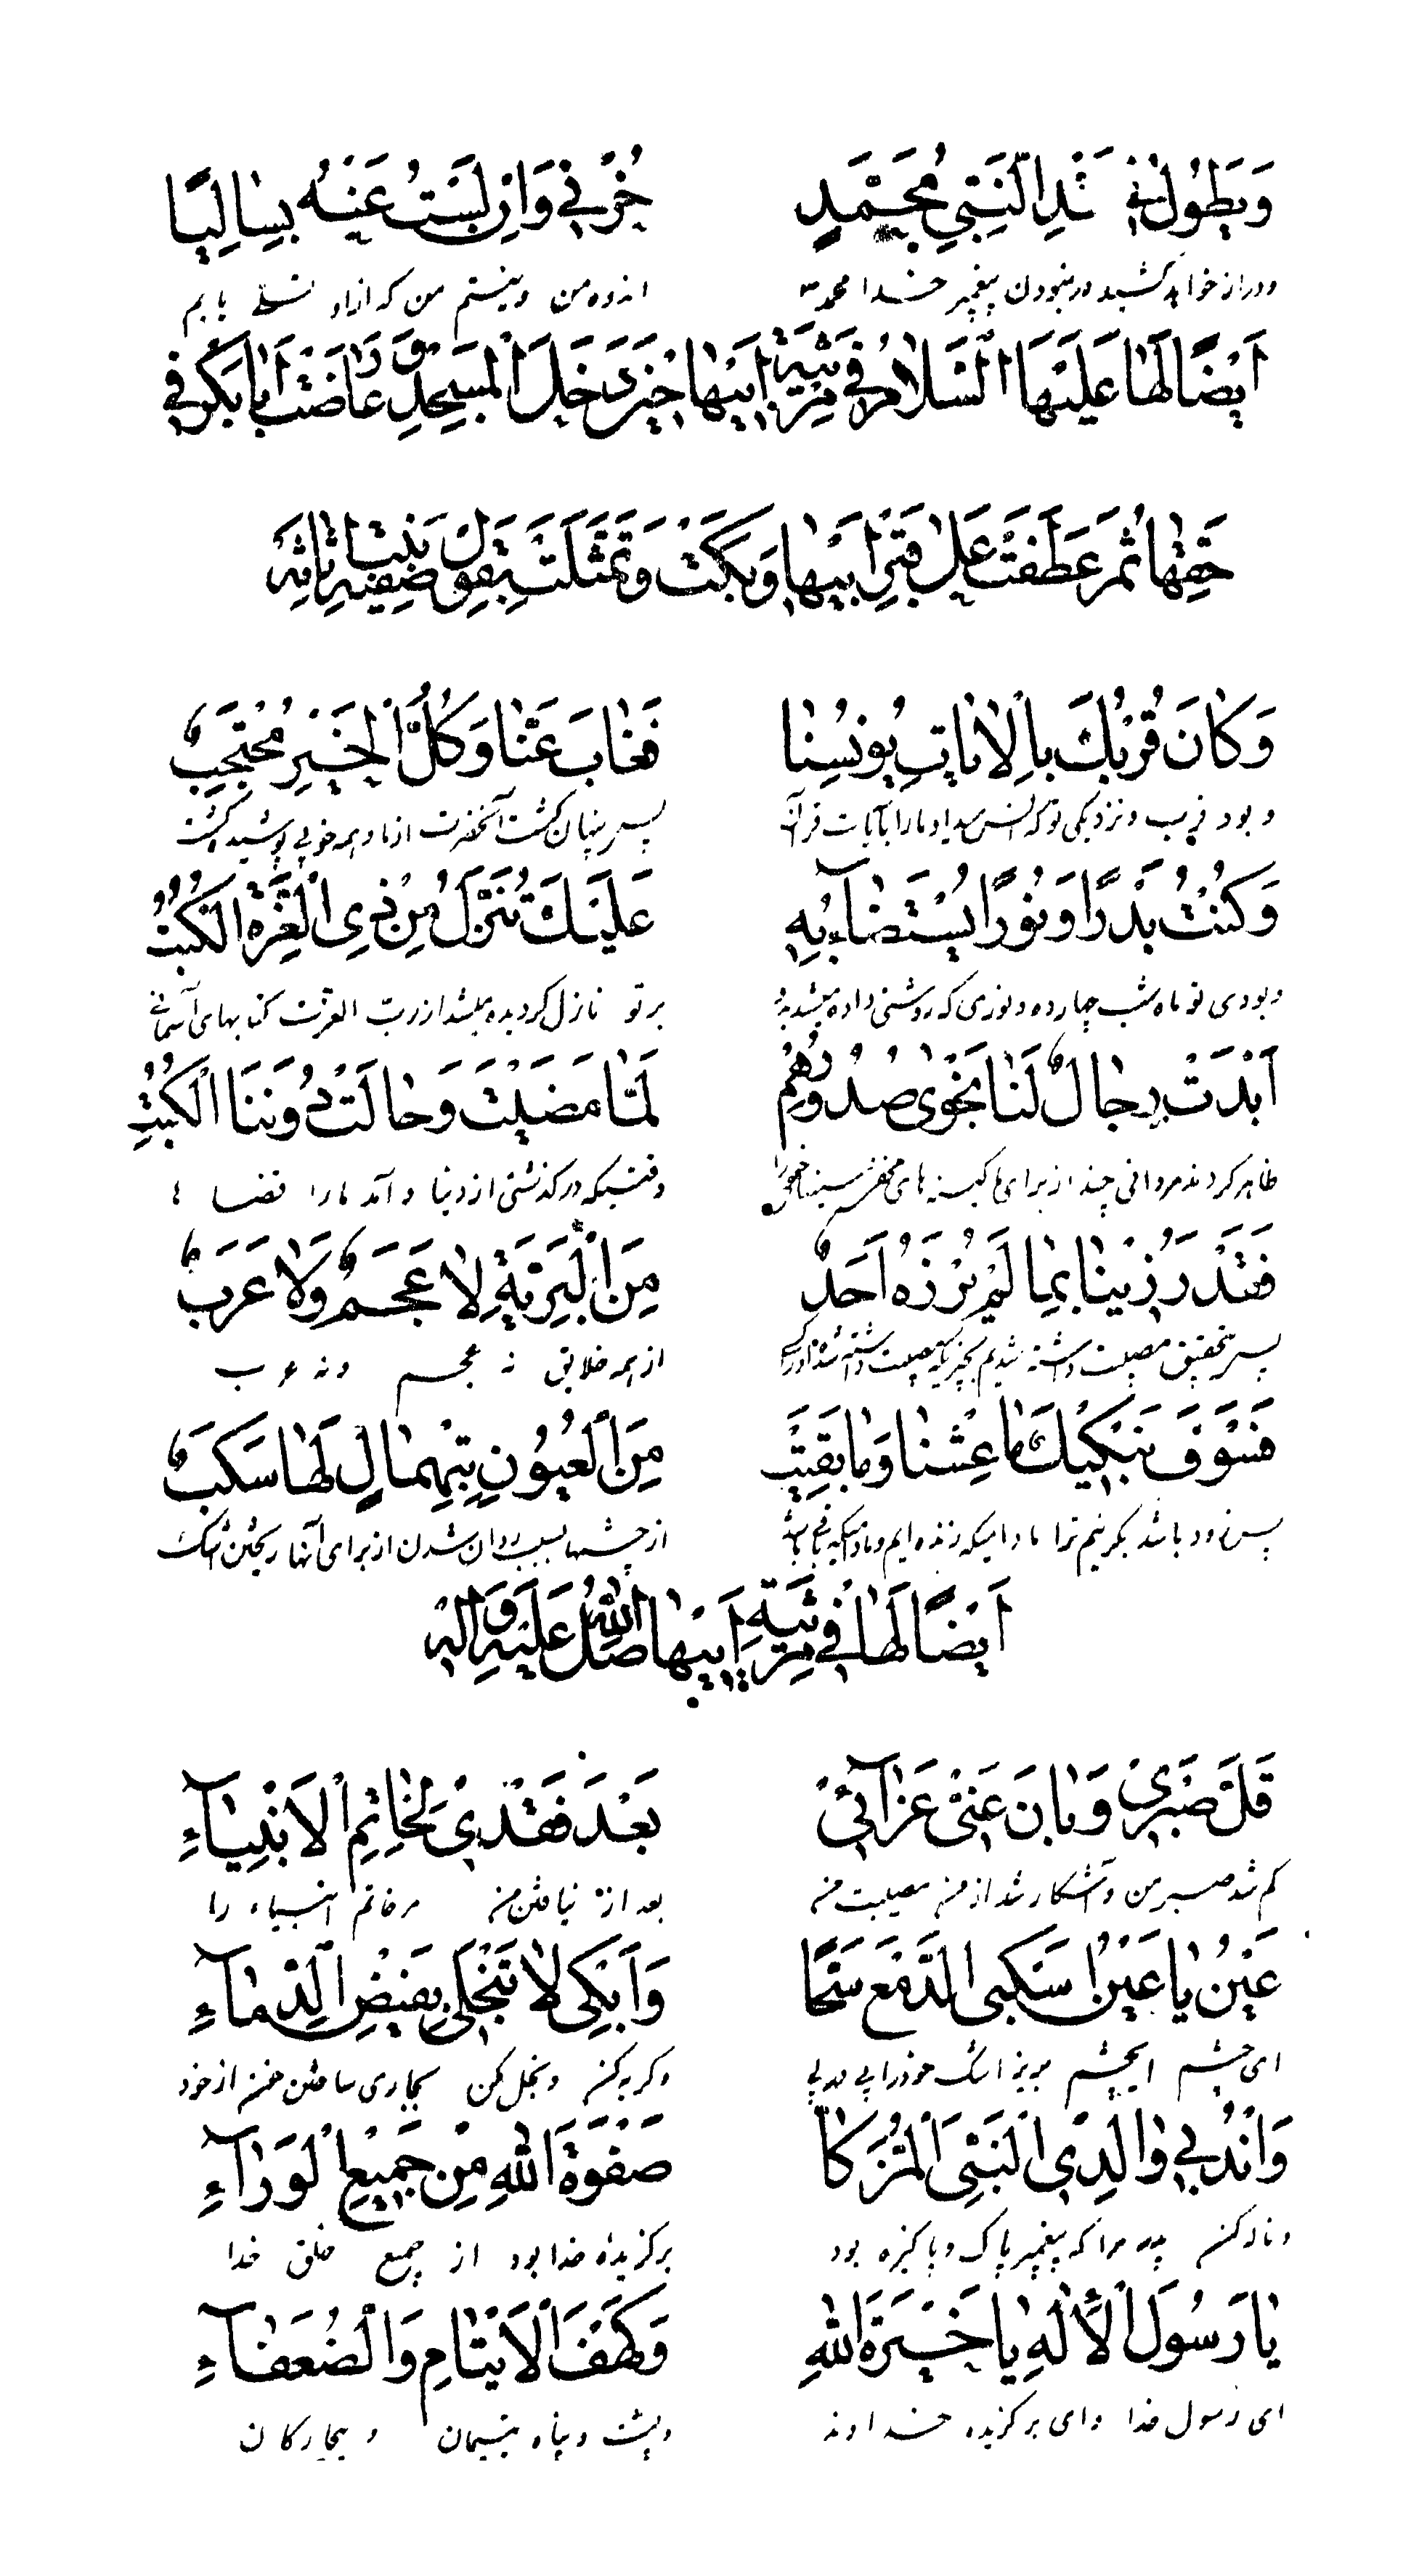 وَيَطُولُ فِي نَدْبِ النَّبِيِّ مُحَمَّدٍ حُزْنِي وَإِنْ لَسْتُ عَنْهُ بِسَالِيًا
ودراز خواهد کشید در نبودن پیغمبر خدا محمد اندوه من و نیستم من که از او تسلی یابم
اَيْضًا لَهَا عَلَيْهَا السَّلَامُ فِي مَرْثِيَةِ اَبِيهَا حِينَ دَخَلَ الْمَسْجِدَ وَ عَاتَبَتْ اَبَابَكْرٍ فِي
حَقِّهَا ثُمَّ عَطَفَتْ عَلَى قَبْرِ اَبِيهَا وَبَكَتْ وَتَمَثَّلَتْ بِقَوْلِ صَفِيَّةَ
وَكَانَ قُرْبُكَ بِالْاٰيَاتِ يُونِسُنَا فَغَابَ عَنَّا وَكُلُّ الْخَيْرِ مُحْتَجِبٌ
و بود قرب و نزدیکی تو که انس میداد ما را بآیات قرآن پس پنهان گشت آنحضرت از ما و همه خوبی پوشیده گشت
وَكُنْتُ بَدْرًا وَنُورًا يُسْتَضَاءُ بِهِ عَلَيْكَ تُنَزَّلُ مِنْ ذِي الْعِزَّةِ الْكُتُبُ
و بودی تو ماه شب چهارده و نوری که روشنی داده میشد بر تو نازل گردیده میشد از رب العزت کتابهای آسمانی
اَبْدَتْ رِجَالٌ لَنَا نَجْوٰى صُدُورِهِمُ لَمَّا مَضَيْتَ وَحَالَتْ دُونَنَا الْكُتُبُ
ظاهر کردند مردانی چند از برای ما کینه های مخفی سینه خود را وقتیکه در گذشتی از دنیا و آمد ما را قضا
فَقَدْ رُزِيْنَا بِمَا لَمْ يُرْزَهُ اَحَدٌ مِنَ الْبَرِيَّةِ لَا عَجَمٌ وَلَا عَرَبٌ
پس بتحقیق مصیبت داشته شدیم از همه خلایق نه عجم و نه عرب
فَسَوْفَ نَبْكِيْكَ مَا عِشْنَا وَمَا بَقِيَتْ مِنَ الْعُيُونِ بِتِهْمَالٍ لَهَا سَكَبٌ
پس زود باشد بگرییم ترا مادامیکه زنده ایم و مادامیکه باقی باشد از چشمها بسبب روان شدن از برای آنها ریختن اشک
اَيْضًا لَهَا فِي مَرْثِيَةِ اَبِيهَا صَلَّى اللهُ عَلَيْهِ وَ اٰلِهٖ
قَلَّ صَبْرِي وَبَانَ عَنِّي عَزَائِي بَعْدَ فَقْدِي لِخَاتِمِ الْاَنْبِيَاءِ
کم شد صبر من و آشکار شد از من مصیبت من بعد از نیافتن من مر خاتم انبیاء را
عَيْنُ يَا عَيْنُ اسْكُبِي الدَّمْعَ سَحًّا وَابْكِي لَا تَبْخَلِي بِفَيْضِ الدِّمَاءِ
ای چشم ایچشم بریز اشک خود را پی در پی و گریه کن و بخل مکن بجاری ساختن خون از خود
وَانْدُبِي وَالِدِي النَّبِيَّ الْمُزَكَّا صَفْوَةَ اللهِ مِنْ جَمِيعِ الْوَرَآءِ
و ناله کن پدر مرا که پیغمبر پاک و پاکیزه بود برگزیده خدا بود از جمیع خلق خدا
يَا رَسُولَ الْاِلٰهِ يَا خَيْرَةَ اللهِ وَكَهْفَ الْاَيْتَامِ وَالضُّعَفَآءِ
ای رسول خدا وای برگزیده خداوند و پشت و پناه یتیمان و بیچارگان